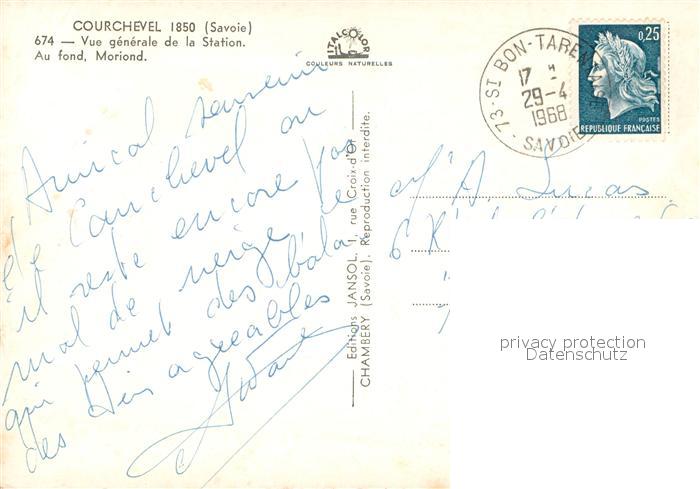 COURCHEVEL 1850 (Savoie)
674 — Vue générale de la Station.
Au fond, Moriond.
ITALCOLOR
COULEURS NATURELLES
73 - ST BON-TARENT
17 H
29-4
1968
SAVOIE
0,25
POSTES
REPUBLIQUE FRANÇAISE
Amical souvenir
de Courchevel ou
il reste encore pas
mal de neige, ce
qui permet des bala
des bien agréables
Editions JANSOL, 1, rue Croix-d'Or
CHAMBERY (Savoie). Reproduction interdite.
A. Lucas
6
privacy protection
Datenschutz